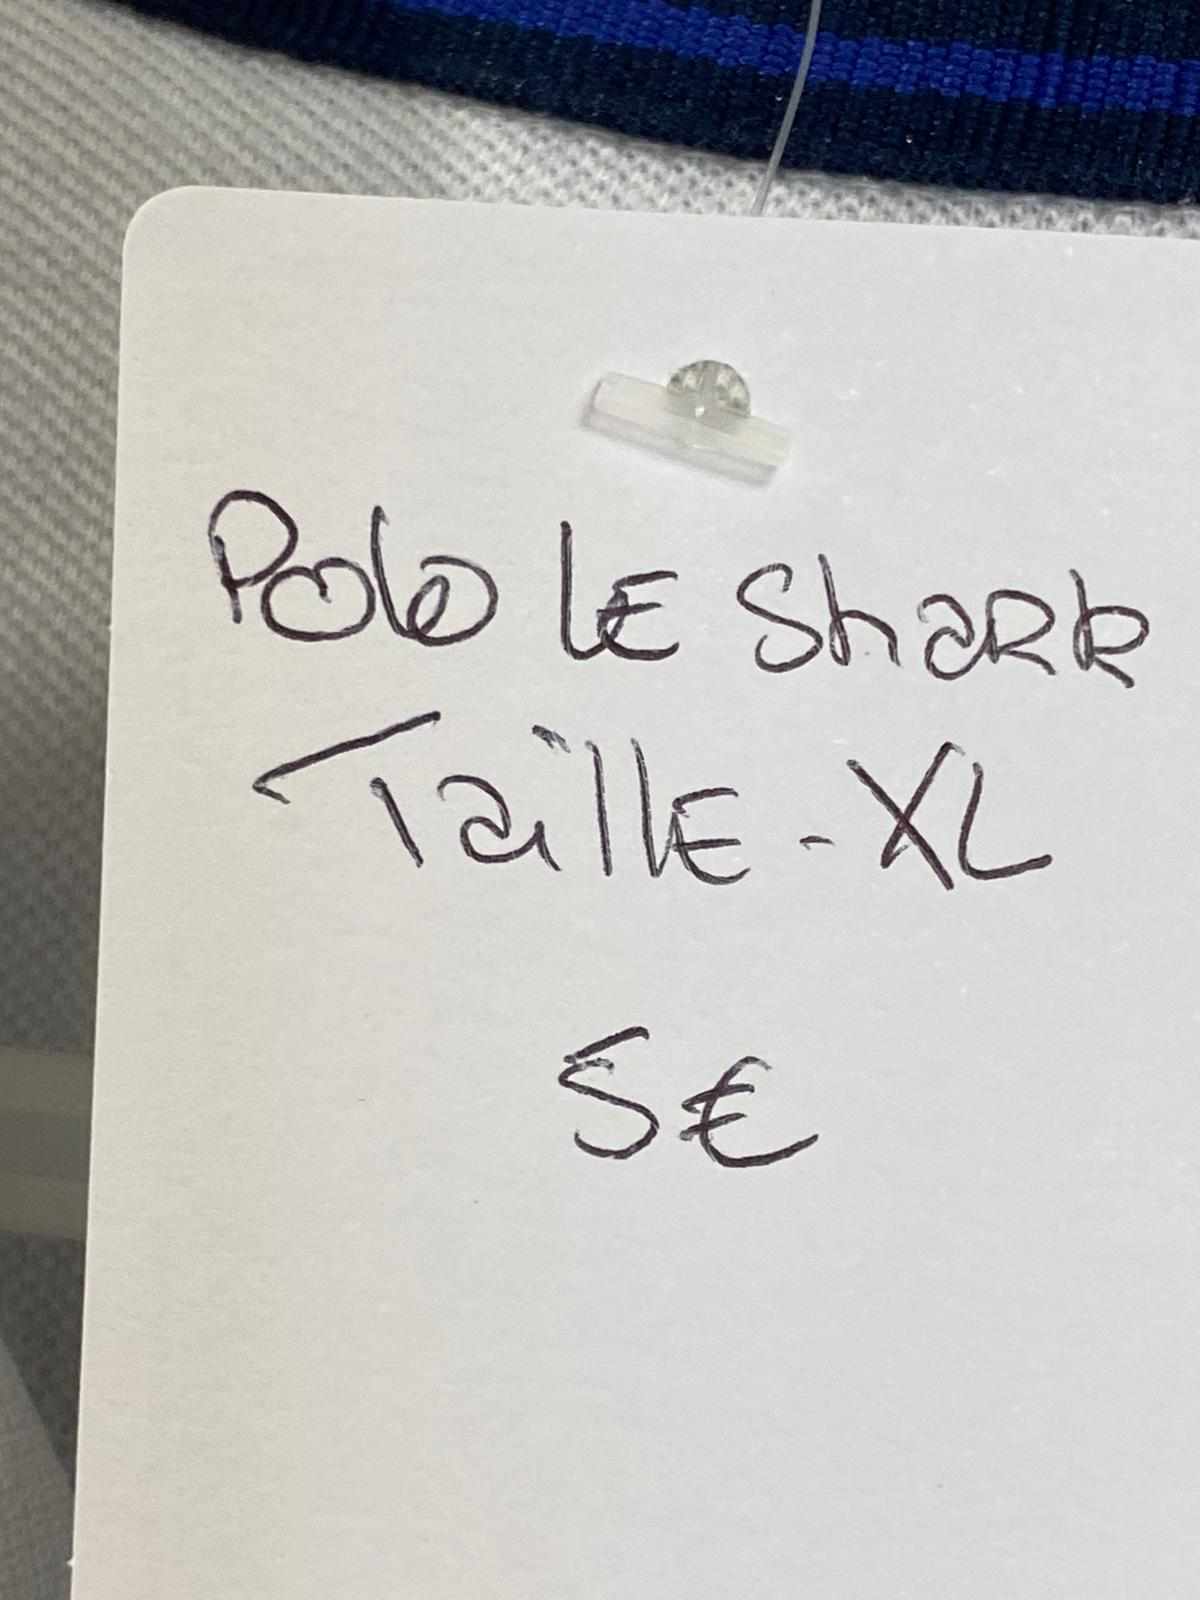 Polo LE ShaRk
TaillE - XL
5€